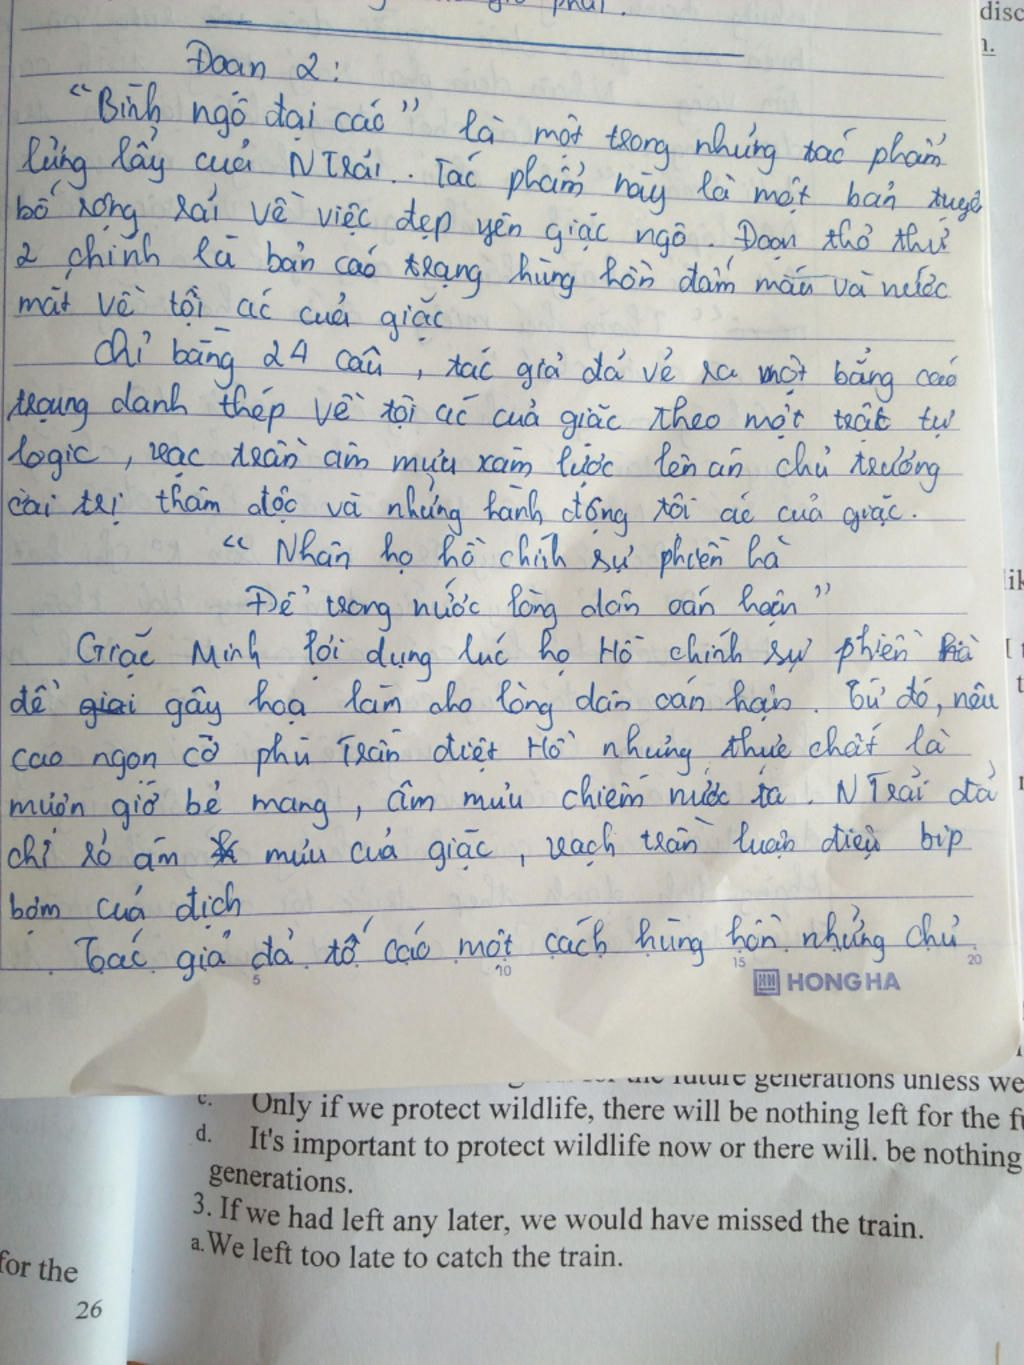 phải.
Đoạn 2:
"Bình ngô đại cáo" là một trong những tác phẩm
lừng lẫy của NTrãi. Tác phẩm này là một bản tuyê
bố rộng rãi về việc dẹp yên giặc ngô. Đoạn thơ thứ
2 chính là bản cáo trạng hùng hồn đẫm máu và nước
mắt về tội ác của giặc
Chỉ bằng 24 câu, tác giả đã vẽ ra một bảng cáo
trạng danh thép về tội ác của giặc theo một trật tự
logic, vạc trần âm mưu xâm lược lên án chủ trương
cai trị thâm độc và những hành động tội ác của giặc.
"Nhân họ hồ chính sự phiền hà
Để trong nước lòng dân oán hận"
Giặc Minh lợi dụng lúc họ Hồ chính sự phiền hà
để gây hoạ làm cho lòng dân oán hận. Từ đó, nêu
cao ngọn cờ phù Trần diệt Hồ nhưng thực chất là
mượn gió bẻ măng, âm mưu chiếm nước ta. NTrãi đã
chỉ rõ âm mưu của giặc, vạch trần luận điệu bịp
bợm của địch
Tác giả đã tố cáo một cách hùng hồn những chủ
5 10 15 20
HONG HA
disc
lik
the future generations unless we
c. Only if we protect wildlife, there will be nothing left for the fu
d. It's important to protect wildlife now or there will. be nothing
generations.
3. If we had left any later, we would have missed the train.
a. We left too late to catch the train.
for the
26